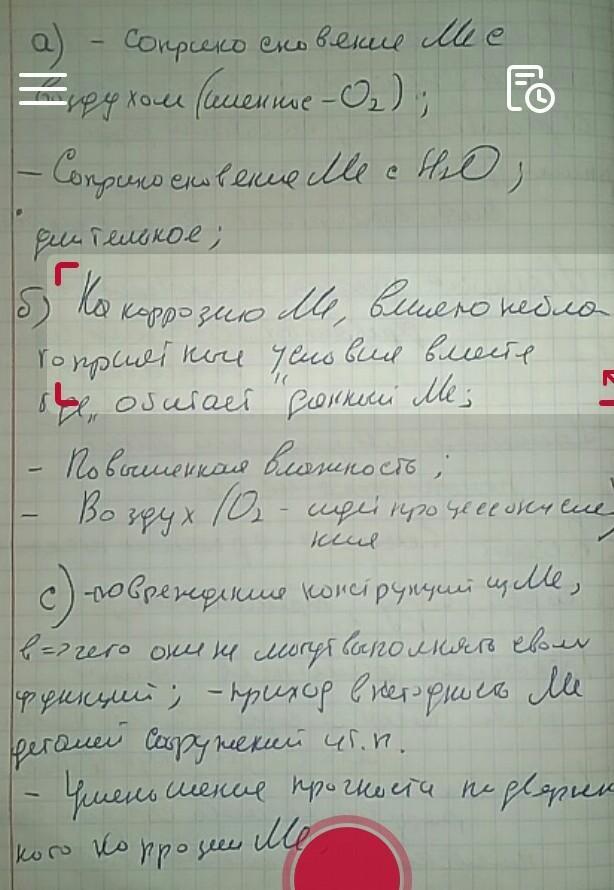 а) - Соприкосновение Ме с
воздухом (именно - O₂) ;
- Соприкосновение Ме с H₂O ;
длительное ;
б) На коррозию Ме, влияют небла
гоприятные условия в месте
где „ обитает " данный Ме ;
- Повышенная влажность ;
- Воздух / O₂ - идёт процесс окисле
ния
с) - повреждение конструкций из Ме,
в => чего они не могут выполнять свои
функций ; - приход в негодность Ме
деталей сооружений и т. п.
- Уменьшение прочности подвержен
ного коррозии Ме